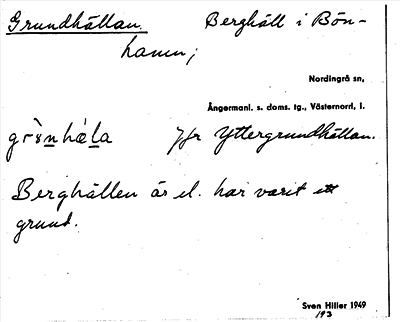 Grundhällan. Berghäll i Bön-
hamn;
Nordingrå sn,
Ångermanl. s. doms. tg., Västernorrl, l.
grὸnhǽla Jfr Yttergrundhällan.
Berghällen är el. har varit ett
grund.
Sven Hiller 1949
193